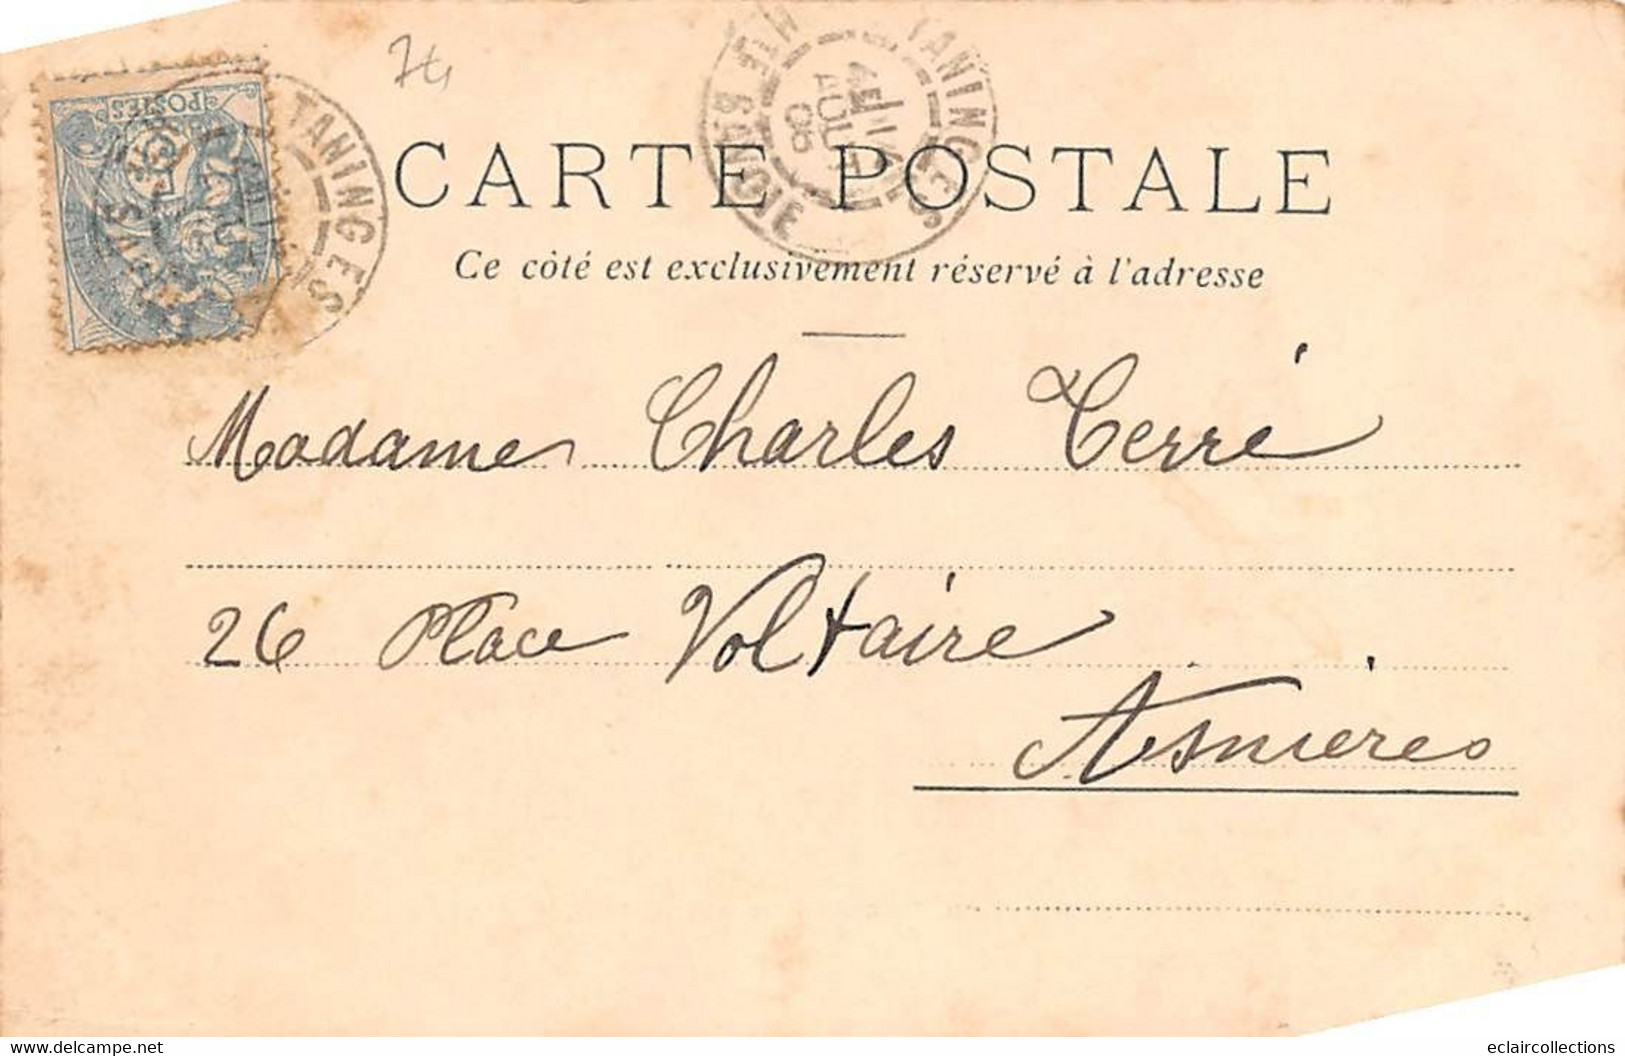 74
POSTES
TANINGES
TANINGES
HTE SAVOIE
AOUT
05
CARTE POSTALE
Ce côté est exclusivement réservé à l'adresse
Madame Charles Terré
26 Place Voltaire
Asnières
www.delcampe.net
eclaircollections